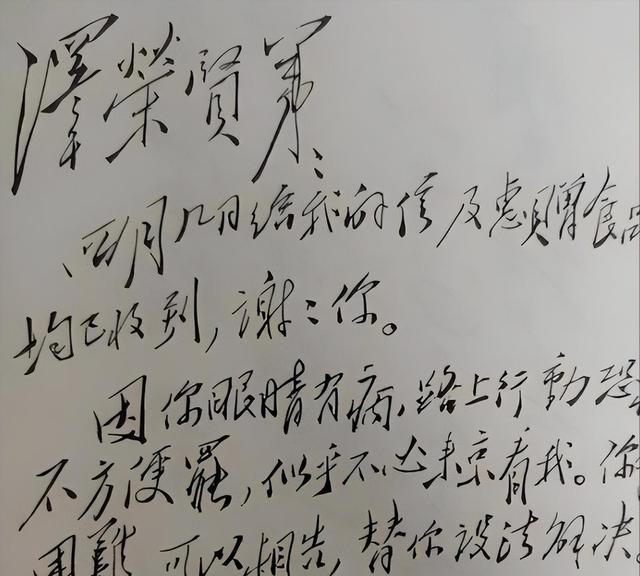 澤榮賢弟：
四月日給我的信及惠贈食品
均已收到，謝々你。
因你眼睛有病，路上行動恐
不方便罷，似乎不必来京看我。你
困難可以相告，替你設法解决